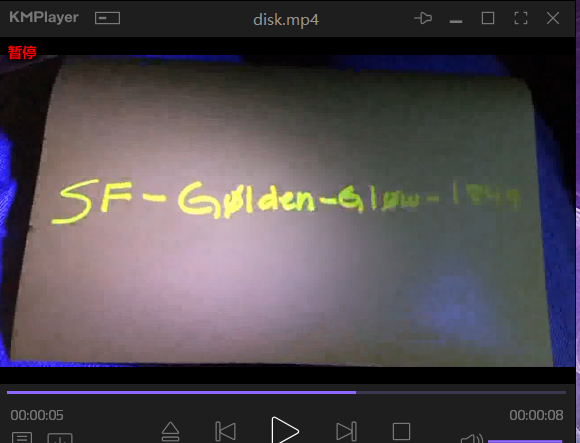 KMPlayer
disk.mp4
暂停
SF-Gølden-Gløw-1849
00:00:05
00:00:08